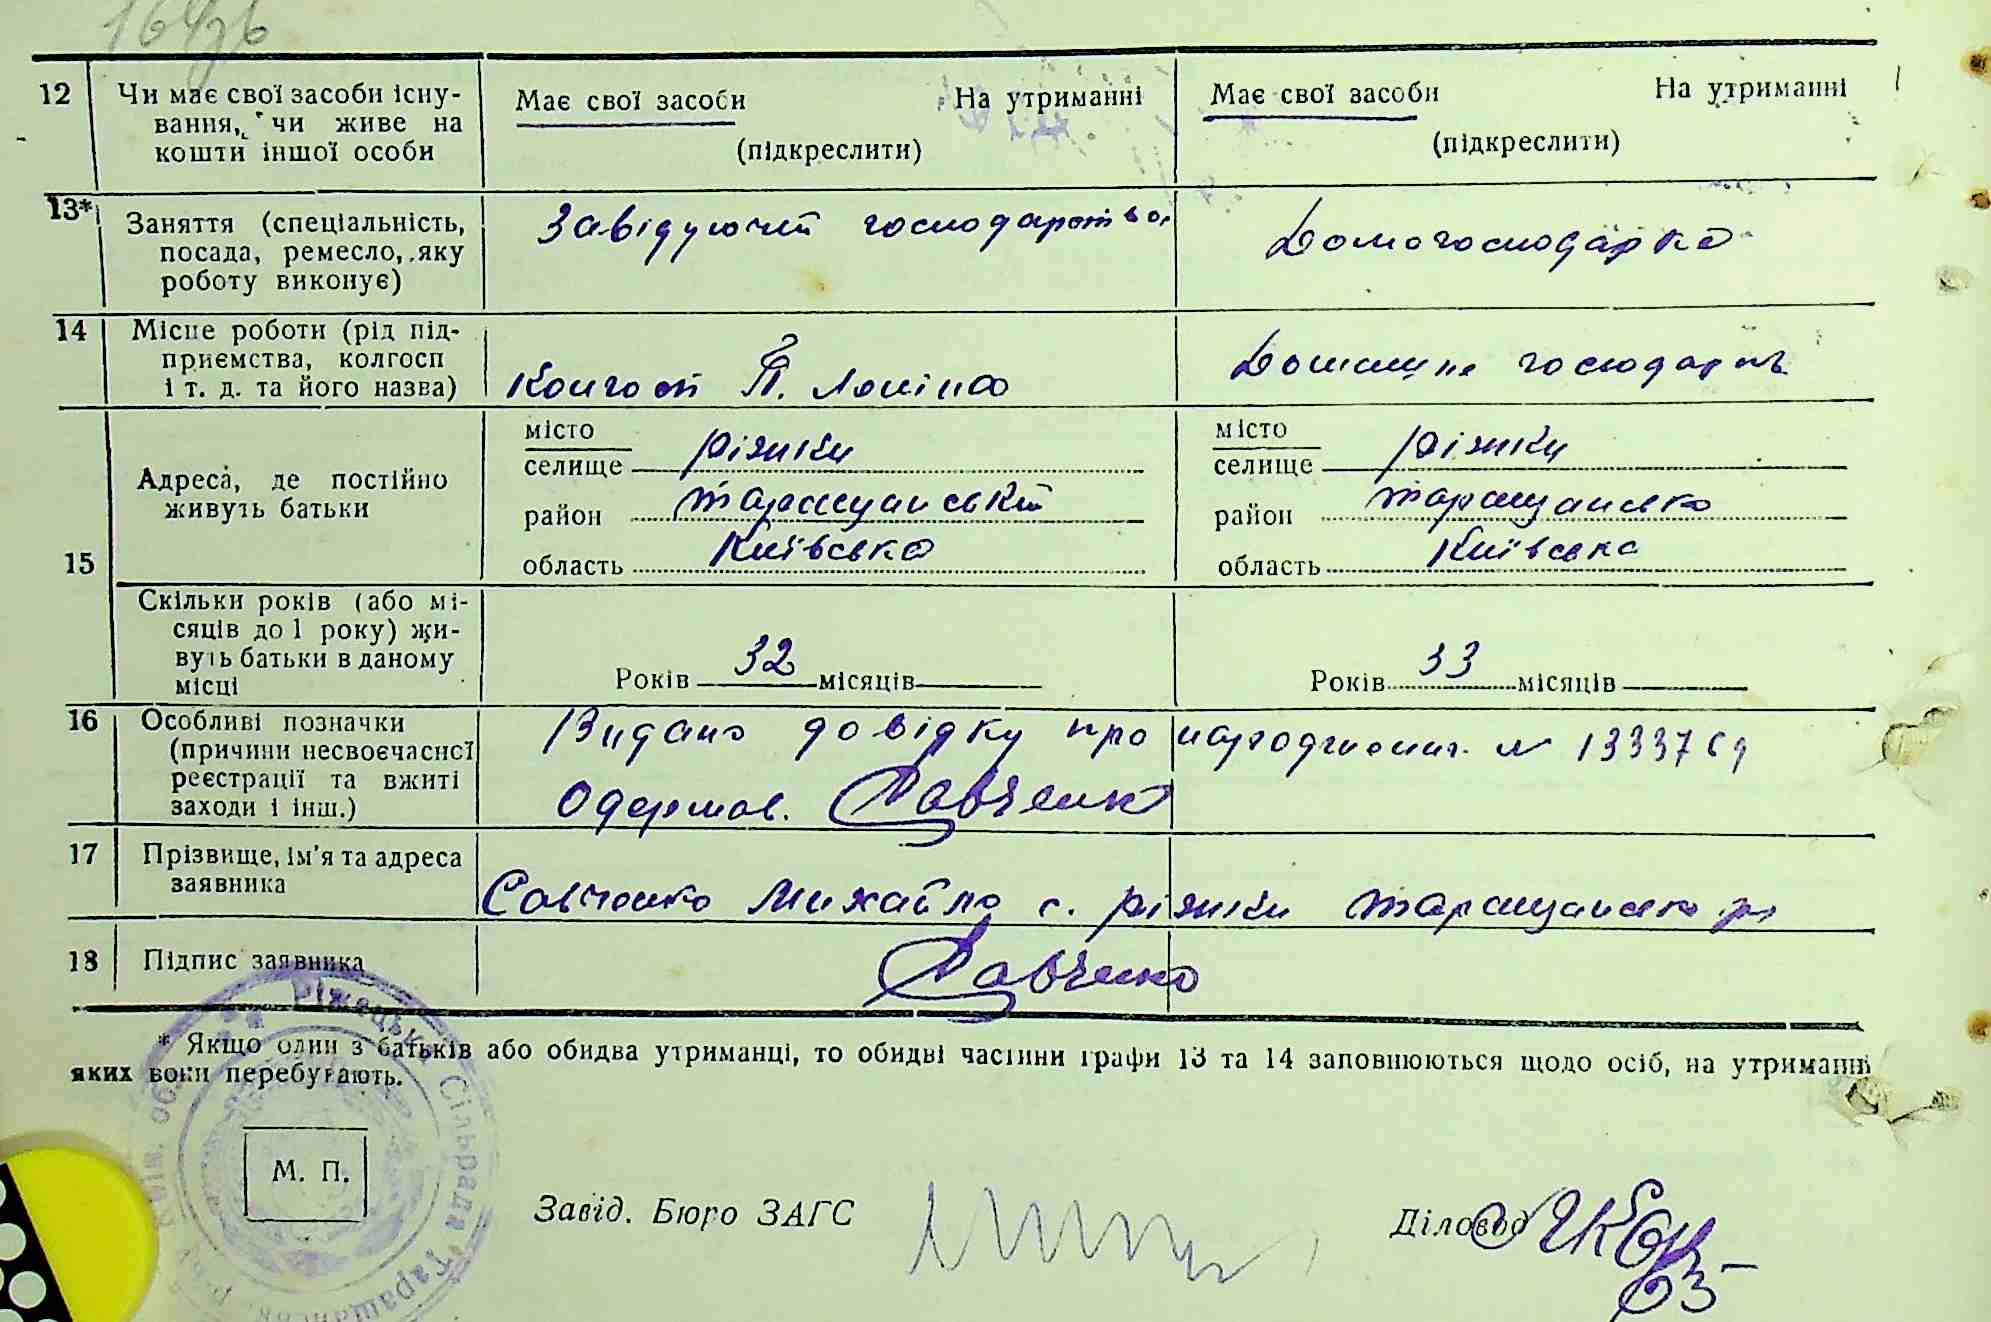 12 Чи має свої засоби існу-
вання, чи живе на
кошти іншої особи
Має свої засоби На утриманні
(підкреслити)
Має свої засоби На утриманні
(підкреслити)
13* Заняття (спеціальність,
посада, ремесло, яку
роботу виконує)
Завідуючий господарства
Домогосподарка
14 Місце роботи (рід під-
приємства, колгосп
і т. д. та його назва)
Колгосп Леніна
Домашнє господар
15 Адреса, де постійно
живуть батьки
місто
селище ріжки
район таращанський
область Київська
місто
селище ріжки
район таращансько
область Київська
Скільки років (або мі-
сяців до 1 року) жи-
вуть батьки в даному
місці
Років 32 місяців
Років 33 місяців
16 Особливі позначки
(причини несвоєчасної
реєстрації та вжиті
заходи і інш.)
Видано довідку про народження №
Одержав. Савченко
17 Прізвище, ім'я та адреса
заявника
Савченко Михайло с. ріжки таращансько р
18 Підпис заявника
Савченко
* Якщо один з батьків або обидва утриманці, то обидві частини графи 13 та 14 заповнюються щодо осіб, на утриманні
яких вони перебувають.
Ріжецька Сільрада Таращанськ.
М. П.
Завід. Бюро ЗАГС
Діловод